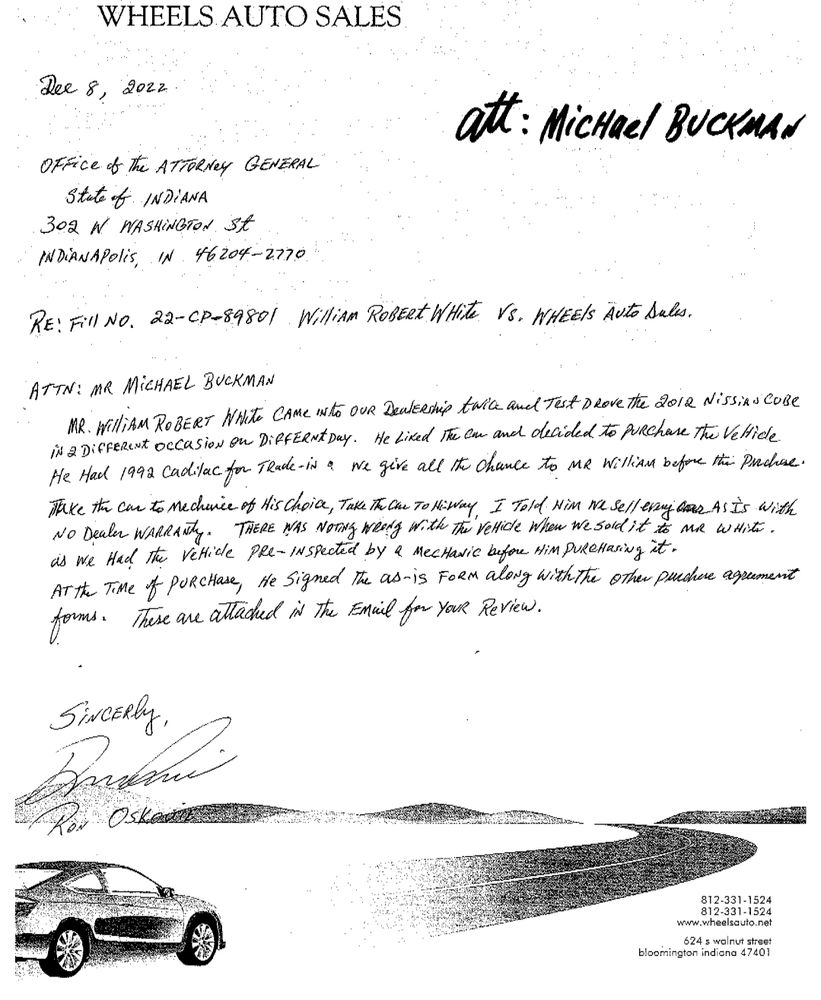 WHEELS AUTO SALES
Dec 8, 2022
att: Michael BUCKMAN
OFFice of the ATTORNey GENERAL
State of INDIANA
302 W WASHINGTON St
INDIANAPOLIS, IN 46204-2770
RE: Fill NO. 22-CP-89801 William ROBERT White VS. WHEELS Auto Sales.
ATTN: MR MICHAEL BUCKMAN
MR. William ROBERT White CAME into OUR Dealership twice and Test DROVE the 2012 NISSIAN CUBE
in 2 DiFFERENT OCCASION on DiFFERNT DAY. He Liked The car and decided to PURCHASE The VeHicle
He Had 1992 Cadilac for TRade-in & we give all the Chance to MR William before the Purchase.
Take the car to Mechanic of His Choice, Take The Car To Hiway, I Told Him we sell every cars AS IS with
NO Dealer WARRANTY. THERE WAS NOTNG WRONG With the VeHicle When We sold it to MR WHITE.
as we Had the VeHicle PRE-INSPECTED by a MecHANIC before Him PURCHASING it.
AT the Time of PURCHASE, He Signed the as-is FORM along with the other purchase agreement
forms. These are attached in the Email for YOUR Review.
SINCERly,
Ron
812-331-1524
812-331-1524
www.wheelsauto.net
624 s walnut street
bloomington indiana 47401